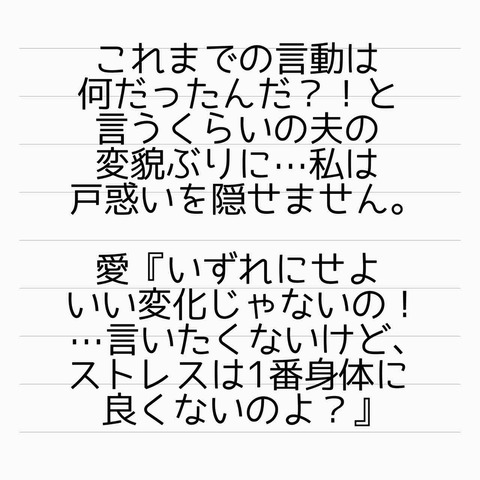 これまでの言動は
何だったんだ？！と
言うくらいの夫の
変貌ぶりに…私は
戸惑いを隠せません。
愛『いずれにせよ
いい変化じゃないの！
…言いたくないけど、
ストレスは1番身体に
良くないのよ？』